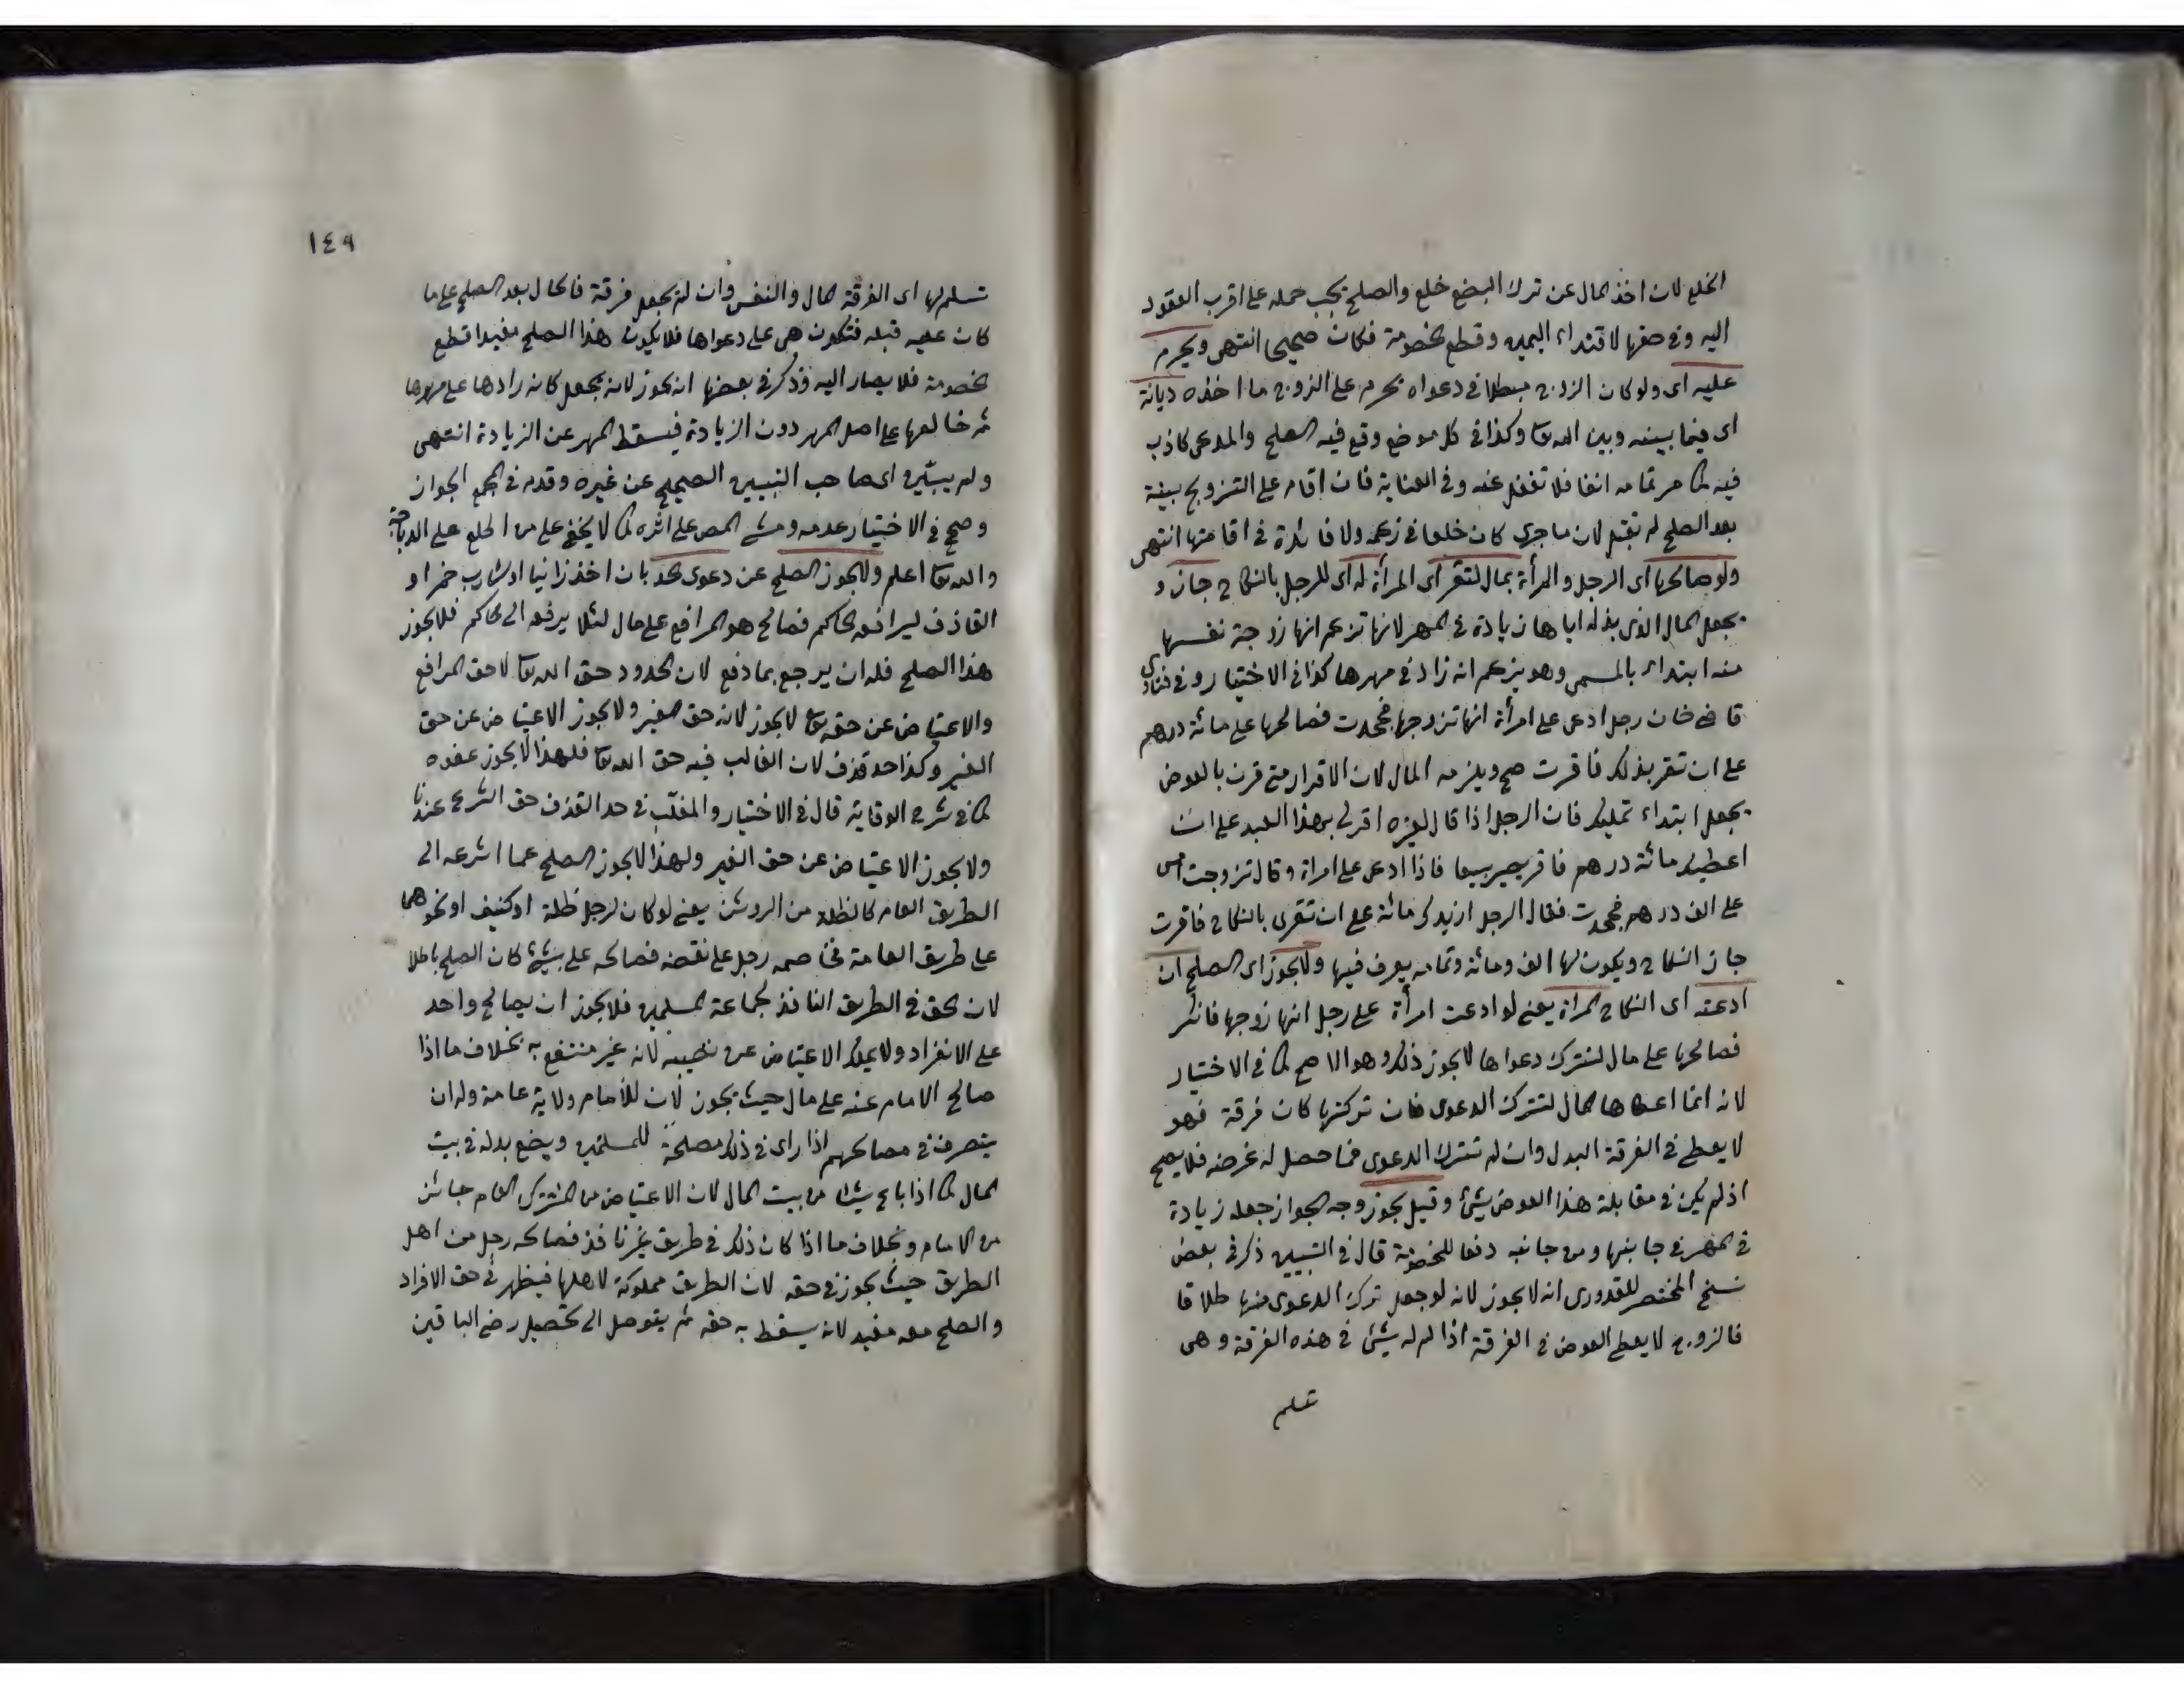 الخلع لان اخذ المال عن ترك البضع خلع والصلح يجب حمله على اقرب العقود
اليه وفى حقها لافتداء اليمين وقطع الخصومة فكان صحيحا انتهى ويحرم
عليه اى ولو كان الزوج مبطلا فى دعواه يحرم على الزوج ما اخذه ديانة
اى فيما بينه وبين الله تعا وكذا فى كل موضع وقع فيه الصلح والمدعى كاذب
فيه كما مر تمامه انفا فلا تغفل عنه وفى العناية فان اقام على التزويج بينة
بعد الصلح لم تقبل لان ما جرى كان خلعا فى زعمه ولا فائدة فى اقامتها انتهى
ولو صالحها اى الرجل والمرأة بمال لتقر اى المرأة له اى للرجل بالنكاح جاز و
يجعل المال الذى بذله اياها زيادة فى المهر لانها تزعم انها زوجة نفسها
منه ابتداء بالمسمى وهو يزعم انه زاد فى مهرها كذا فى الاختيار وفى فتاوى
قاضى خان رجل ادعى على امرأة انها تزوجها فجحدت فصالحها على مائة درهم
على ان تقر بذلك فاقرت صح ويلزمه المال لان الاقرار متى قرن بالعوض
يجعل ابتداء تمليك فان الرجل اذا قال لغيره اقر لى بهذا العبد على ان
اعطيك مائة درهم فاقر يصير بيعا فاذا ادعى على امراة وقال تزوجت امس
على الف درهم فجحدت فقال الرجل ازيدك مائة على ان تقرى بالنكاح فاقرت
جاز النكاح ويكون لها الف ومائة وتمامه يعرف فيها ولا يجوز اى الصلح ان
ادعته اى النكاح المرأة يعنى لو ادعت امرأة على رجل انها زوجها فانكر
فصالحها على مال لتترك دعواها لا يجوز ذلك وهو الاصح كما فى الاختيار
لانه انما اعطاها المال لتترك الدعوى فان تركتها كان فرقة فهو
لا يعطى فى الفرقة البدل وان لم تترك الدعوى فما حصل له غرضه فلا يصح
اذ لم يكن فى مقابلة هذا العوض شئ وقيل يجوز وجه الجواز جعله زيادة
فى المهر فى جانبها ومن جانبه دفعا للخصومة قال فى التبيين ذكر فى بعض
نسخ المختصر للقدورى انه لا يجوز لانه لو جعل ترك الدعوى منها طلاقا
فالزوج لا يعطى العوض فى الفرقة اذا لم له شئ فى هذه الفرقة وهى
تسلم
١٤٩
تسلم لها اى الفرقة المال والنفس وان لم يجعل فرقة فالحال بعد الصلح على ما
كان عليه قبله فتكون هى على دعواها فلا يكون هذا الصلح مفيدا قطع
الخصومة فلا يصار اليه وذكر فى بعضها انه يجوز لانه يجعل كانه زادها على مهرها
ثم خالعها على اصل المهر دون الزيادة فيسقط المهر عن الزيادة انتهى
ولم يبين اى صاحب التبيين الصحيح عن غيره وقدم فى المجمع الجواز
وصحح فى الاختيار عدمه ومشى المص على اثره كما لا يخفى على من اطلع على الديباجة
والله تعا اعلم ولا يجوز الصلح عن دعوى حد بان اخذ زانيا او شارب خمر او
القاذف ليرافعه للحاكم فصالح هو المرافع على مال لئلا يرفعه الى الحاكم فلا يجوز
هذا الصلح فله ان يرجع بما دفع لان الحدود حق الله تعا لا حق المرافع
والاعتياض عن حقه تعا لا يجوز لانه حق الغير ولا يجوز الاعتياض عن حق
الغير وكذا حد قذف لان الغالب فيه حق الله تعا فلهذا لا يجوز عفوه
كما فى شرح الوقاية قال فى الاختيار والمغلب فى حد القذف حق الشرع عندنا
ولا يجوز الاعتياض عن حق الغير ولهذا لا يجوز الصلح عما اشرعه الى
الطريق العام كالظلة من الروشن يعنى لو كان لرجل ظلة او كنيف او نحوهما
على طريق العامة فخاصمه رجل على نقضه فصالحه على شئ كان الصلح باطلا
لان الحق فى الطريق النافذ لجماعة المسلمين فلا يجوز ان يصالح واحد
على الانفراد ولا يملك الاعتياض عن نصيبه لانه غير منتفع به بخلاف ما اذا
صالح الامام عنه على مال حيث يجوز لان للامام ولاية عامة وله ان
يتصرف فى مصالحهم اذا راى فى ذلك مصلحة للمسلمين ويضع بدله فى بيت
المال كما اذا باع شيئا من بيت المال لان الاعتياض من المشترك العام جائز
من الامام وبخلاف ما اذا كان ذلك فى طريق غير نافذ فصالحه رجل من اهل
الطريق حيث يجوز فى حقه لان الطريق مملوكة لاهلها فيظهر فى حق الافراد
والصلح معه مفيد لانه يسقط به حقه ثم يتوصل الى تحصيل رضى الباقين